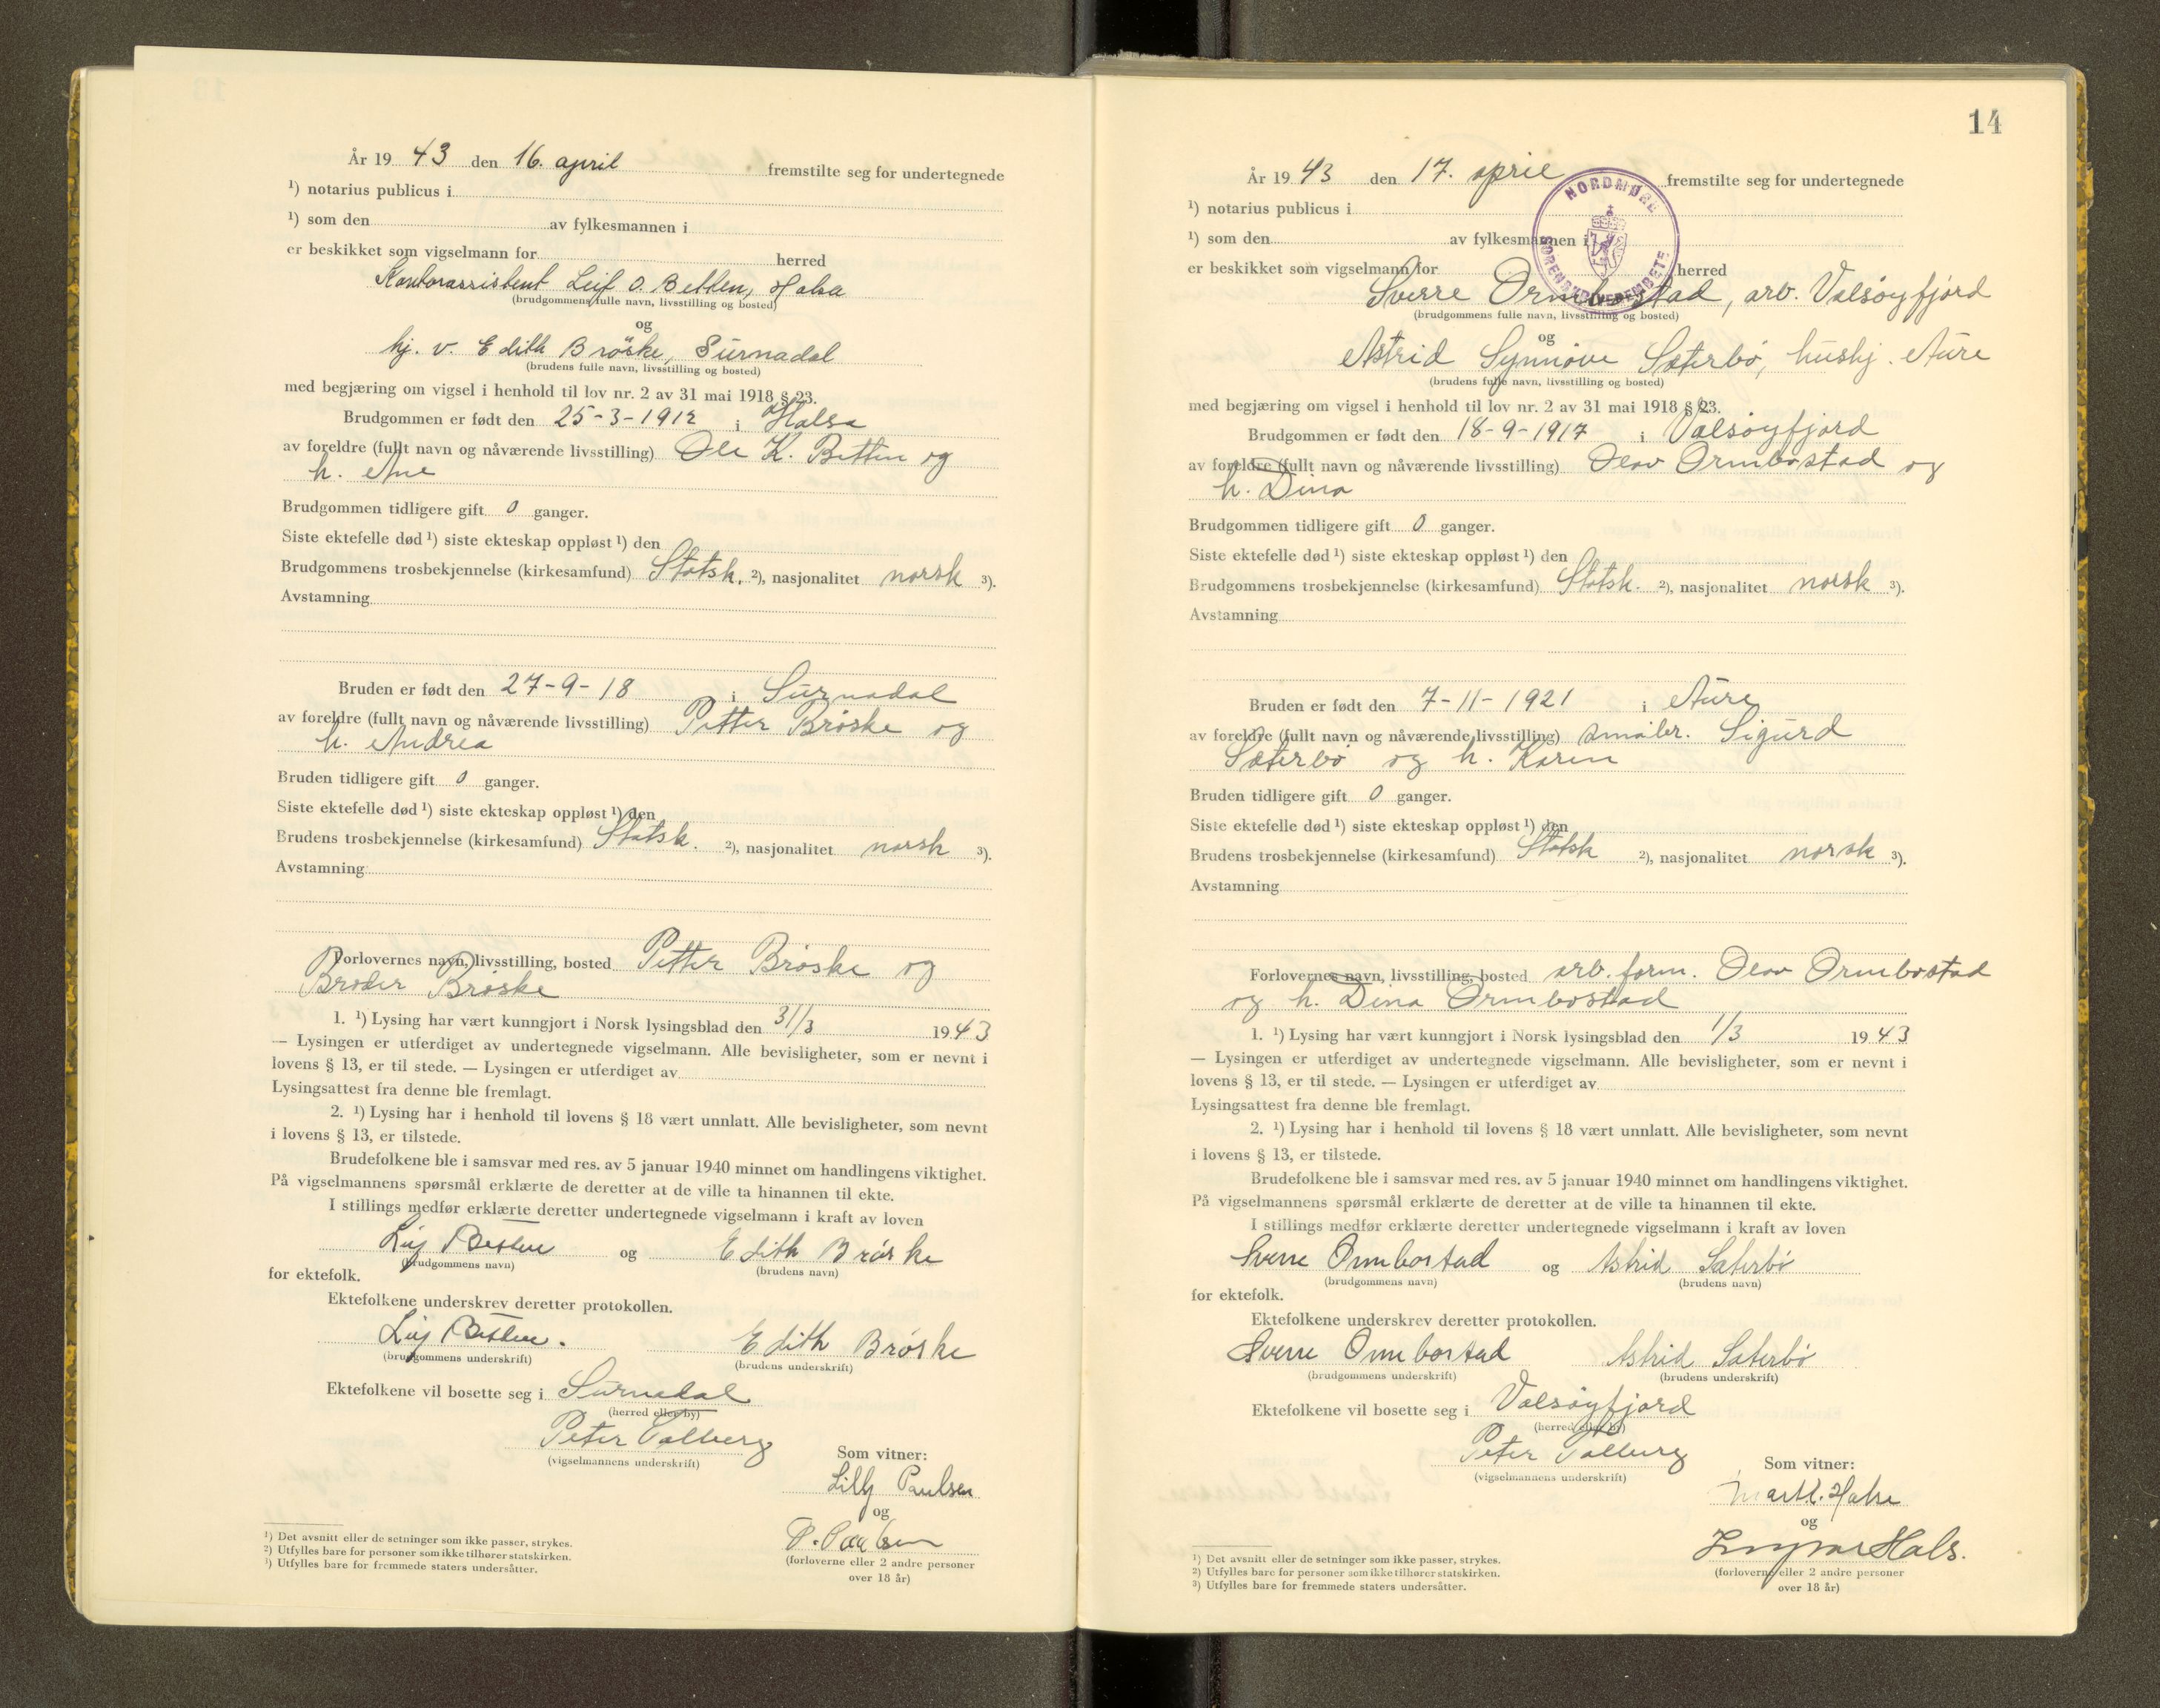 År 19 43 den 16. april fremstilte seg for undertegnede
¹) notarius publicus i
¹) som den av fylkesmannen i
er beskikket som vigselmann for herred
Kontorassistent Leif O. Betten, Halsa
(brudgommens fulle navn, livsstilling og bosted)
og
hj. v. Edith Brøske, Surnadal
(brudens fulle navn, livsstilling og bosted)
med begjæring om vigsel i henhold til lov nr. 2 av 31 mai 1918 § 23.
Brudgommen er født den 25-3-1912 i Halsa
av foreldre (fullt navn og nåværende livsstilling) Ole K. Betten og
h. Ane
Brudgommen tidligere gift 0 ganger.
Siste ektefelle død ¹) siste ekteskap oppløst ¹) den
Brudgommens trosbekjennelse (kirkesamfund) Statsk. ²), nasjonalitet norsk ³).
Avstamning
Bruden er født den 27-9-18 i Surnadal
av foreldre (fullt navn og nåværende livsstilling) Petter Brøske og
h. Andrea
Bruden tidligere gift 0 ganger.
Siste ektefelle død ¹) siste ekteskap oppløst ¹) den
Brudens trosbekjennelse (kirkesamfund) Statsk. ²), nasjonalitet norsk ³).
Avstamning
Forlovernes navn, livsstilling, bosted Petter Brøske og
Broder Brøske
1. ¹) Lysing har vært kunngjort i Norsk lysingsblad den 31/3 1943
— Lysingen er utferdiget av undertegnede vigselmann. Alle bevisligheter, som er nevnt i
lovens § 13, er til stede. — Lysingen er utferdiget av
Lysingsattest fra denne ble fremlagt.
2. ¹) Lysing har i henhold til lovens § 18 vært unnlatt. Alle bevisligheter, som nevnt
i lovens § 13, er tilstede.
Brudefolkene ble i samsvar med res. av 5 januar 1940 minnet om handlingens viktighet.
På vigselmannens spørsmål erklærte de deretter at de ville ta hinannen til ekte.
I stillings medfør erklærte deretter undertegnede vigselmann i kraft av loven
Leif Betten og Edith Brøske
(brudgommens navn) (brudens navn)
for ektefolk.
Ektefolkene underskrev deretter protokollen.
Leif Betten. Edith Brøske
(brudgommens underskrift) (brudens underskrift)
Ektefolkene vil bosette seg i Surnadal
(herred eller by)
Peter Tolberg
(vigselmannens underskrift)
Som vitner:
Lilly Paulsen
og
P. Paulsen
(forloverne eller 2 andre personer
over 18 år)
¹) Det avsnitt eller de setninger som ikke passer, strykes.
²) Utfylles bare for personer som ikke tilhører statskirken.
³) Utfylles bare for fremmede staters undersåtter.
14
År 19 43 den 17. april fremstilte seg for undertegnede
NORDMØRE SORENSKRIVEREMBETE
¹) notarius publicus i
¹) som den av fylkesmannen i
er beskikket som vigselmann for herred
Sverre Ormbostad, arb. Valsøyfjord
(brudgommens fulle navn, livsstilling og bosted)
og
Astrid Synnøve Sæterbø, hushj. Aure
(brudens fulle navn, livsstilling og bosted)
med begjæring om vigsel i henhold til lov nr. 2 av 31 mai 1918 § 23.
Brudgommen er født den 18-9-1917 i Valsøyfjord
av foreldre (fullt navn og nåværende livsstilling) Olav Ormbostad og
h. Dina
Brudgommen tidligere gift 0 ganger.
Siste ektefelle død ¹) siste ekteskap oppløst ¹) den
Brudgommens trosbekjennelse (kirkesamfund) Statsk. ²), nasjonalitet norsk ³).
Avstamning
Bruden er født den 7-11-1921 i Aure
av foreldre (fullt navn og nåværende livsstilling) småbr. Sigurd
Sæterbø og h. Karen
Bruden tidligere gift 0 ganger.
Siste ektefelle død ¹) siste ekteskap oppløst ¹) den
Brudens trosbekjennelse (kirkesamfund) Statsk ²), nasjonalitet norsk ³).
Avstamning
Forlovernes navn, livsstilling, bosted arb. form. Olav Ormbostad
og h. Dina Ormbostad
1. ¹) Lysing har vært kunngjort i Norsk lysingsblad den 1/3 1943
— Lysingen er utferdiget av undertegnede vigselmann. Alle bevisligheter, som er nevnt i
lovens § 13, er til stede. — Lysingen er utferdiget av
Lysingsattest fra denne ble fremlagt.
2. ¹) Lysing har i henhold til lovens § 18 vært unnlatt. Alle bevisligheter, som nevnt
i lovens § 13, er tilstede.
Brudefolkene ble i samsvar med res. av 5 januar 1940 minnet om handlingens viktighet.
På vigselmannens spørsmål erklærte de deretter at de ville ta hinannen til ekte.
I stillings medfør erklærte deretter undertegnede vigselmann i kraft av loven
Sverre Ormbostad og Astrid Sæterbø
(brudgommens navn) (brudens navn)
for ektefolk.
Ektefolkene underskrev deretter protokollen.
Sverre Ormbostad Astrid Sæterbø
(brudgommens underskrift) (brudens underskrift)
Ektefolkene vil bosette seg i Valsøyfjord
(herred eller by)
Peter Tolberg
(vigselmannens underskrift)
Som vitner:
Halse
og
Ingvar Hals.
(forloverne eller 2 andre personer
over 18 år)
¹) Det avsnitt eller de setninger som ikke passer, strykes.
²) Utfylles bare for personer som ikke tilhører statskirken.
³) Utfylles bare for fremmede staters undersåtter.